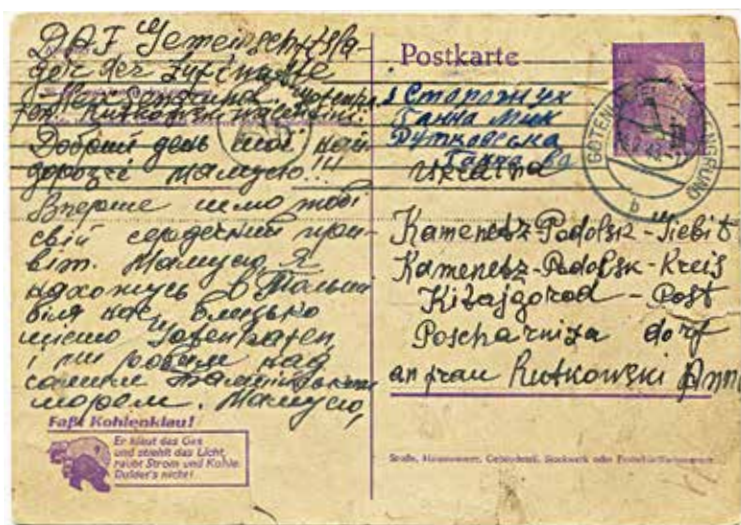 DAF Gemeinschaftsla-
ger der
Добрий день мої най
дорожчі Мамусю!!!
Вперше шлю тобі
свій сердечний при-
віт. Мамусю, Я
нахожусь в
біля нас близько
місто Gotenhafen
і ми робим над
самим
морем. Мамусю,
Faßt Kohlenklau!
Er klaut das Gas
und stiehlt das Licht,
raubt Strom und Kohle.
Duldet's nicht!
Postkarte
6
GOTENHAFEN
b
Сторожук
Ганна Мик
Рутковська
Ганна
Ukraina
Kamenetz-Podolsk-Gebit
Kamenetz-Podolsk-Kreis
Kitajgorod - Post
Poscharniza dorf
an frau Rutkowski Ann
Straße, Hausnummer, Gebäudeteil, Stockwerk oder Postschließfachnummer